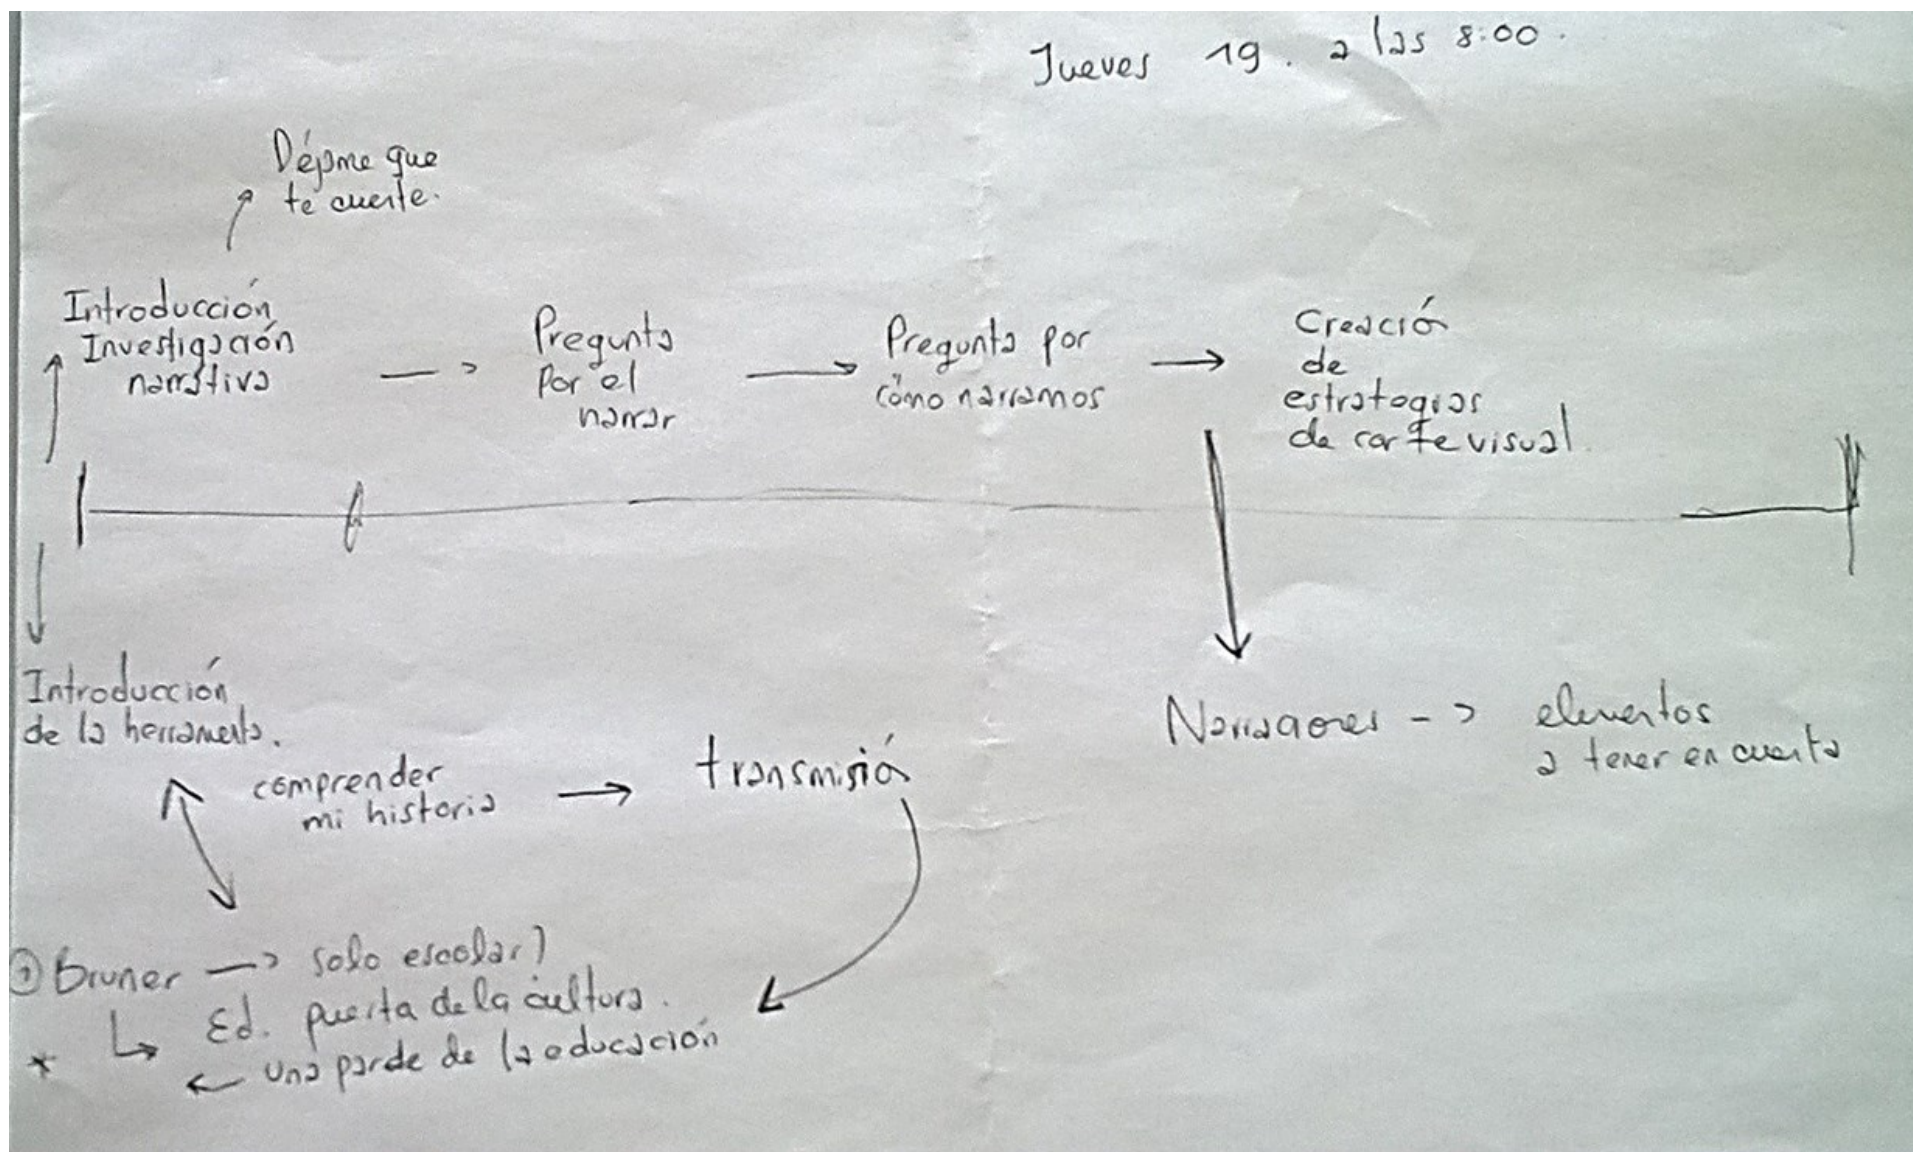 Jueves 19. a las 8:00.
Déjame que
te cuente.
Introducción
Investigación
narrativa
Pregunta
Por el
narrar
Pregunta por
cómo narramos
Creació
de
estrategias
de corte visual.
Introducción
de la herramienta.
comprender
mi historia
transmisió
Narraciones -> elementos
a tener en cuenta
Bruner -> solo escolar?
Ed. puerta de la cultura.
* una parde de la educación